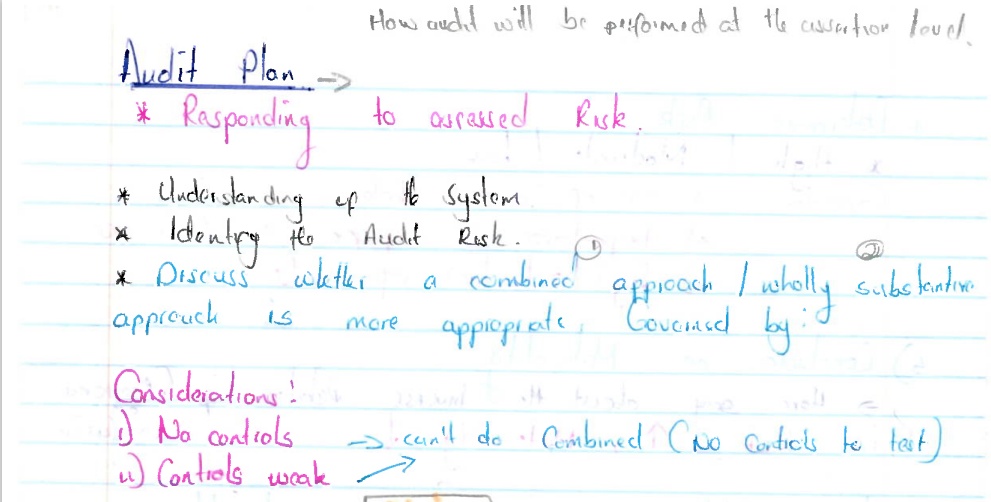 How audit will be performed at the assertion level.
Audit Plan →
* Responding to assessed Risk.
* Understanding of the System
* Identify the Audit Risk.
① ②
* Discuss whether a combined approach / wholly substantive
approach is more appropriate, Governed by:
Considerations:
i) No controls → can't do Combined (No Controls to test)
ii) Controls weak